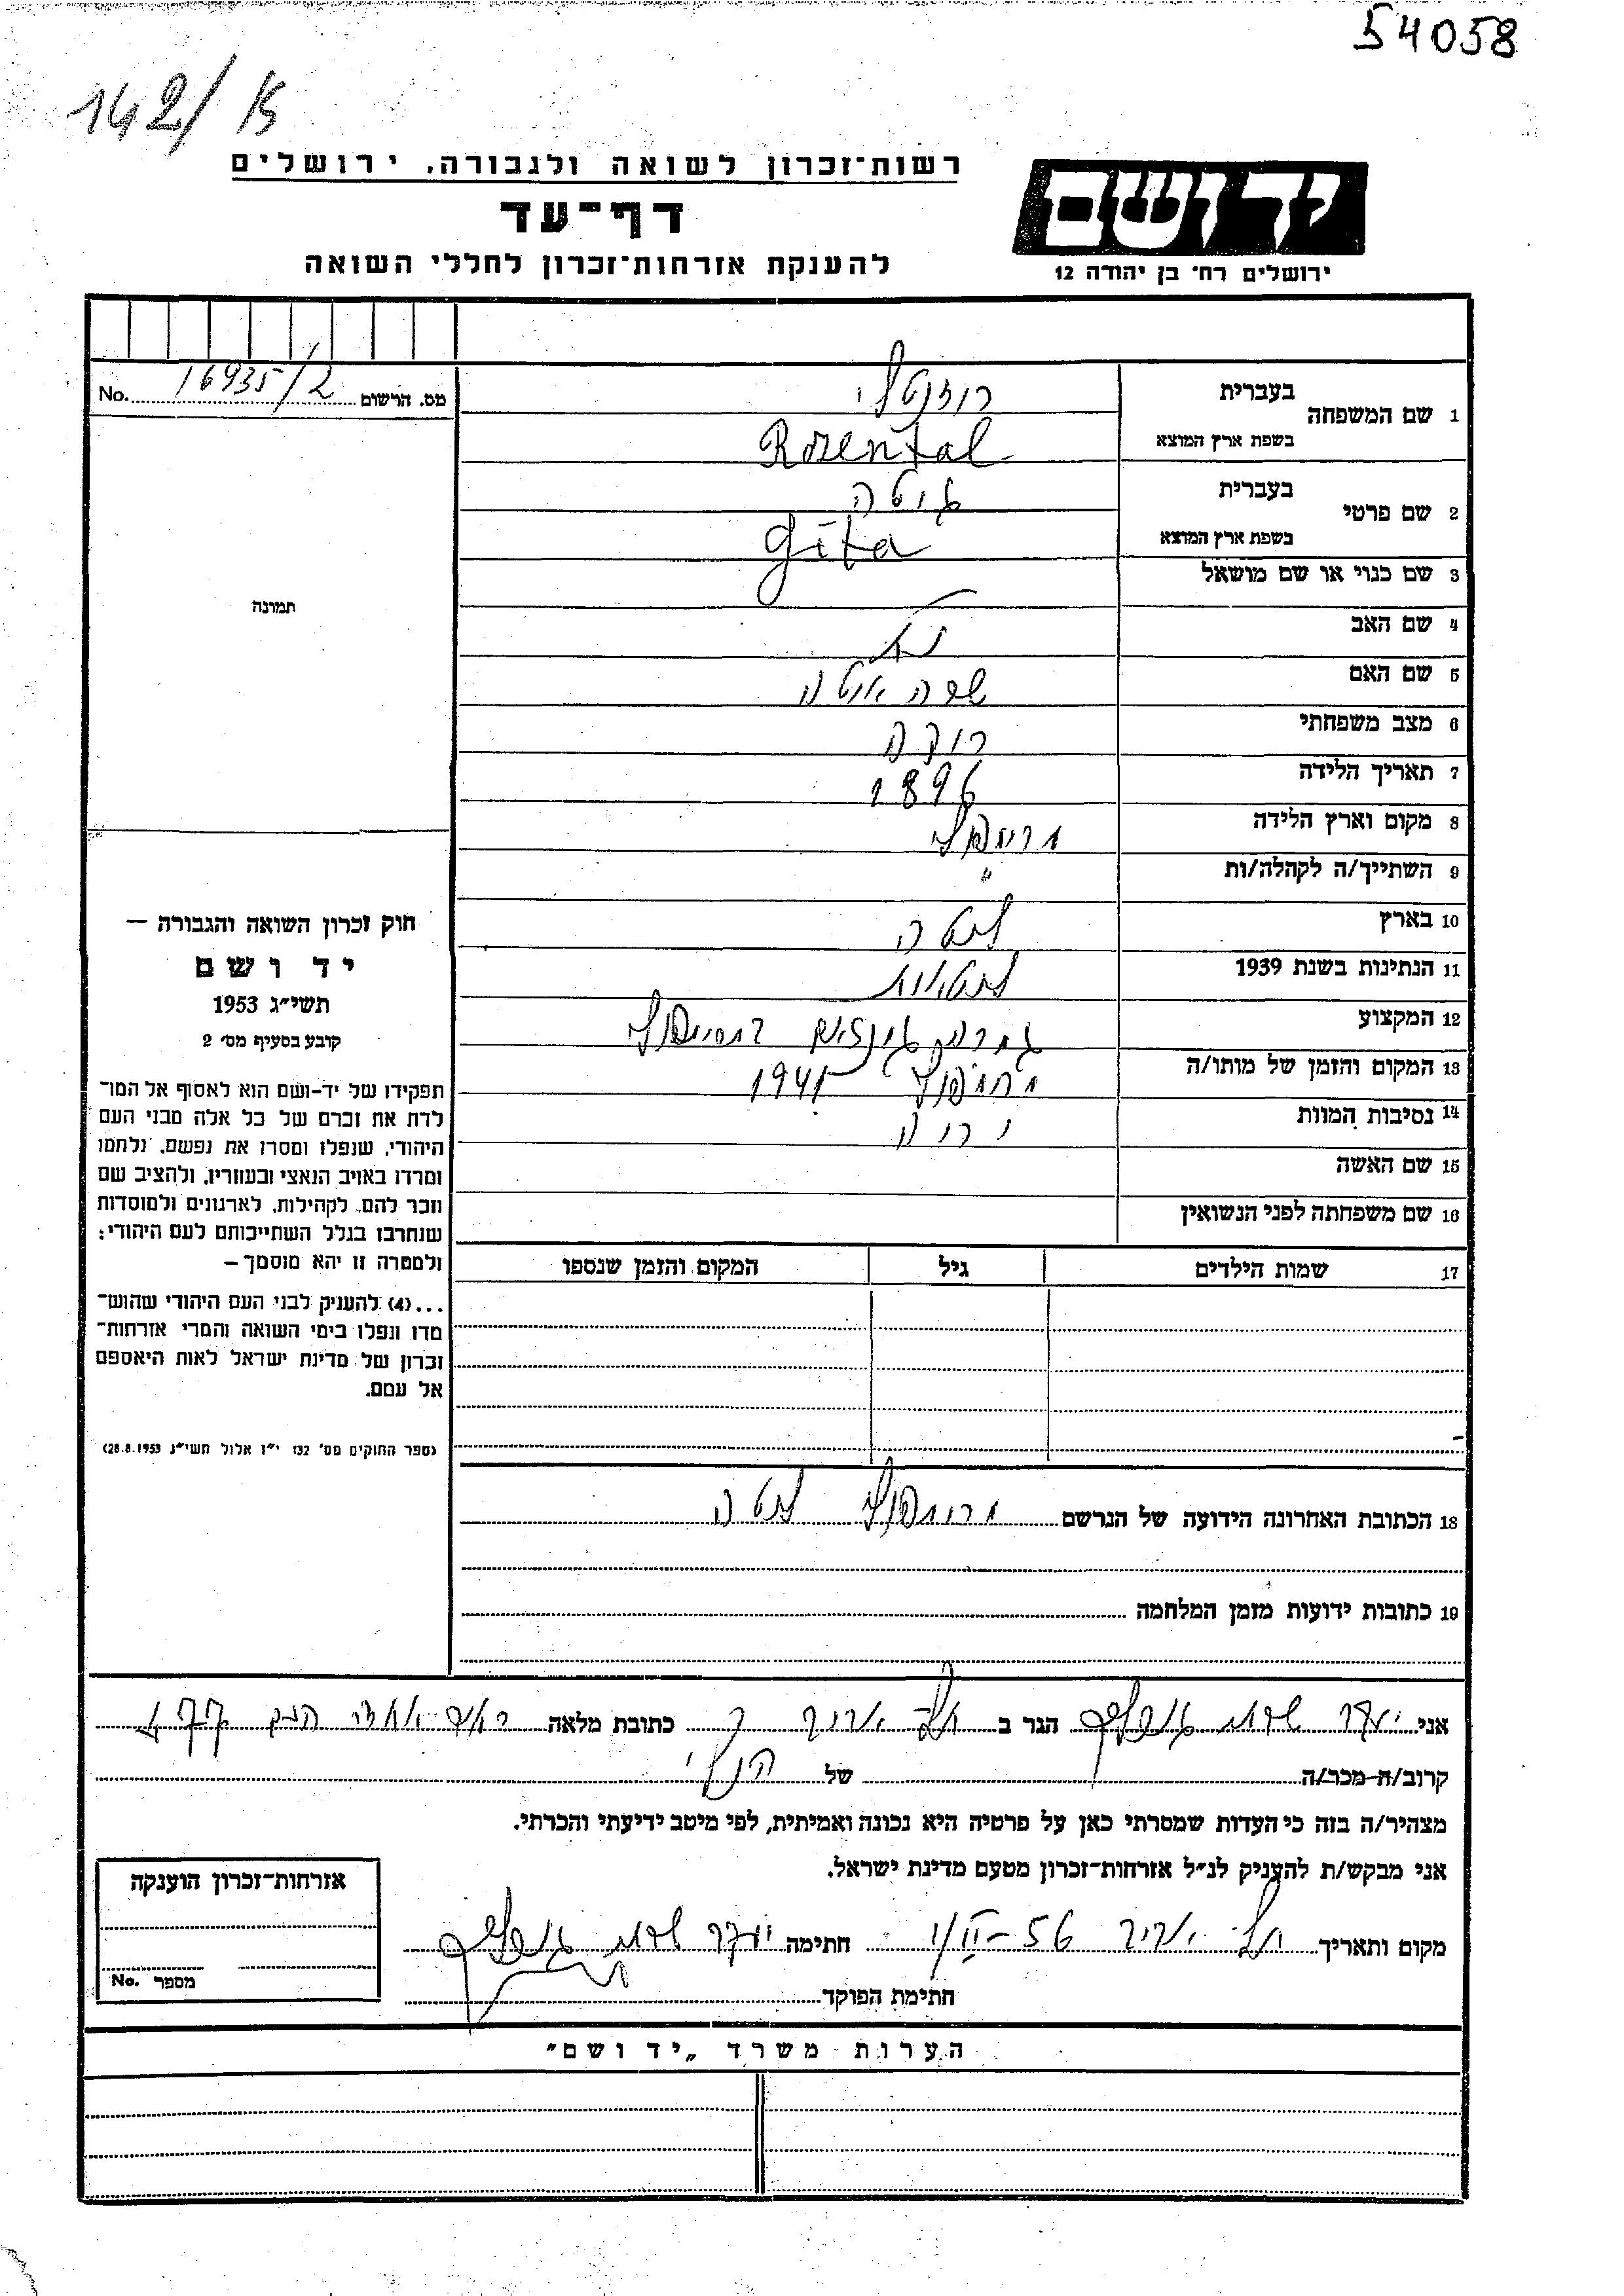 54058
142/K
רשות־זכרון לשואה ולגבורה, ירושלים
דף־עד
להענקת אזרחות־זכרון לחללי השואה
יד ושם
ירושלים רח' בן יהודה 12
מס. הרשום 16935/2 No.
1 שם המשפחה
בעברית רוזנטלי
בשפת ארץ המוצא Rozental
2 שם פרטי
בעברית גיטה
בשפת ארץ המוצא Gita
3 שם כנוי או שם מושאל
4 שם האב
5 שם האם שרה
6 מצב משפחתי רוקה
7 תאריך הלידה 1896
8 מקום וארץ הלידה
9 השתייך/ה לקהלה/ות "
10 בארץ לטביה
11 הנתינות בשנת 1939
12 המקצוע
13 המקום והזמן של מותו/ה 1941
14 נסיבות המוות יריה
15 שם האשה
16 שם משפחתה לפני הנשואין
17 שמות הילדים גיל המקום והזמן שנספו
תמונה
חוק זכרון השואה והגבורה —
יד ושם
תשי״ג 1953
קובע בסעיף מס' 2
תפקידו של יד־ושם הוא לאסוף אל המו־
לדת את זכרם של כל אלה מבני העם
היהודי, שנפלו ומסרו את נפשם, נלחמו
ומרדו באויב הנאצי ובעוזריו, ולהציב שם
וזכר להם, לקהילות, לארגונים ולמוסדות
שנחרבו בגלל השתייכותם לעם היהודי;
ולמטרה זו יהא מוסמך —
...(4) להעניק לבני העם היהודי שהוש־
מדו ונפלו בימי השואה והמרי אזרחות־
זכרון של מדינת ישראל לאות היאספם
אל עמם.
(ספר החוקים מס' 132 י״ז אלול תשי״ג 28.8.1953)
18 הכתובת האחרונה הידועה של הנרשם
19 כתובות ידועות מזמן המלחמה
אני הגר ב תל אביב כתובת מלאה
קרוב/ה־מכר/ה של הנ״ל
מצהיר/ה בזה כי העדות שמסרתי כאן על פרטיה היא נכונה ואמיתית, לפי מיטב ידיעתי והכרתי.
אני מבקש/ת להעניק לנ״ל אזרחות־זכרון מטעם מדינת ישראל.
מקום ותאריך תל אביב 1/II-56 חתימה
חתימת הפוקד
אזרחות־זכרון הוענקה
מספר No.
הערות משרד „יד ושם"